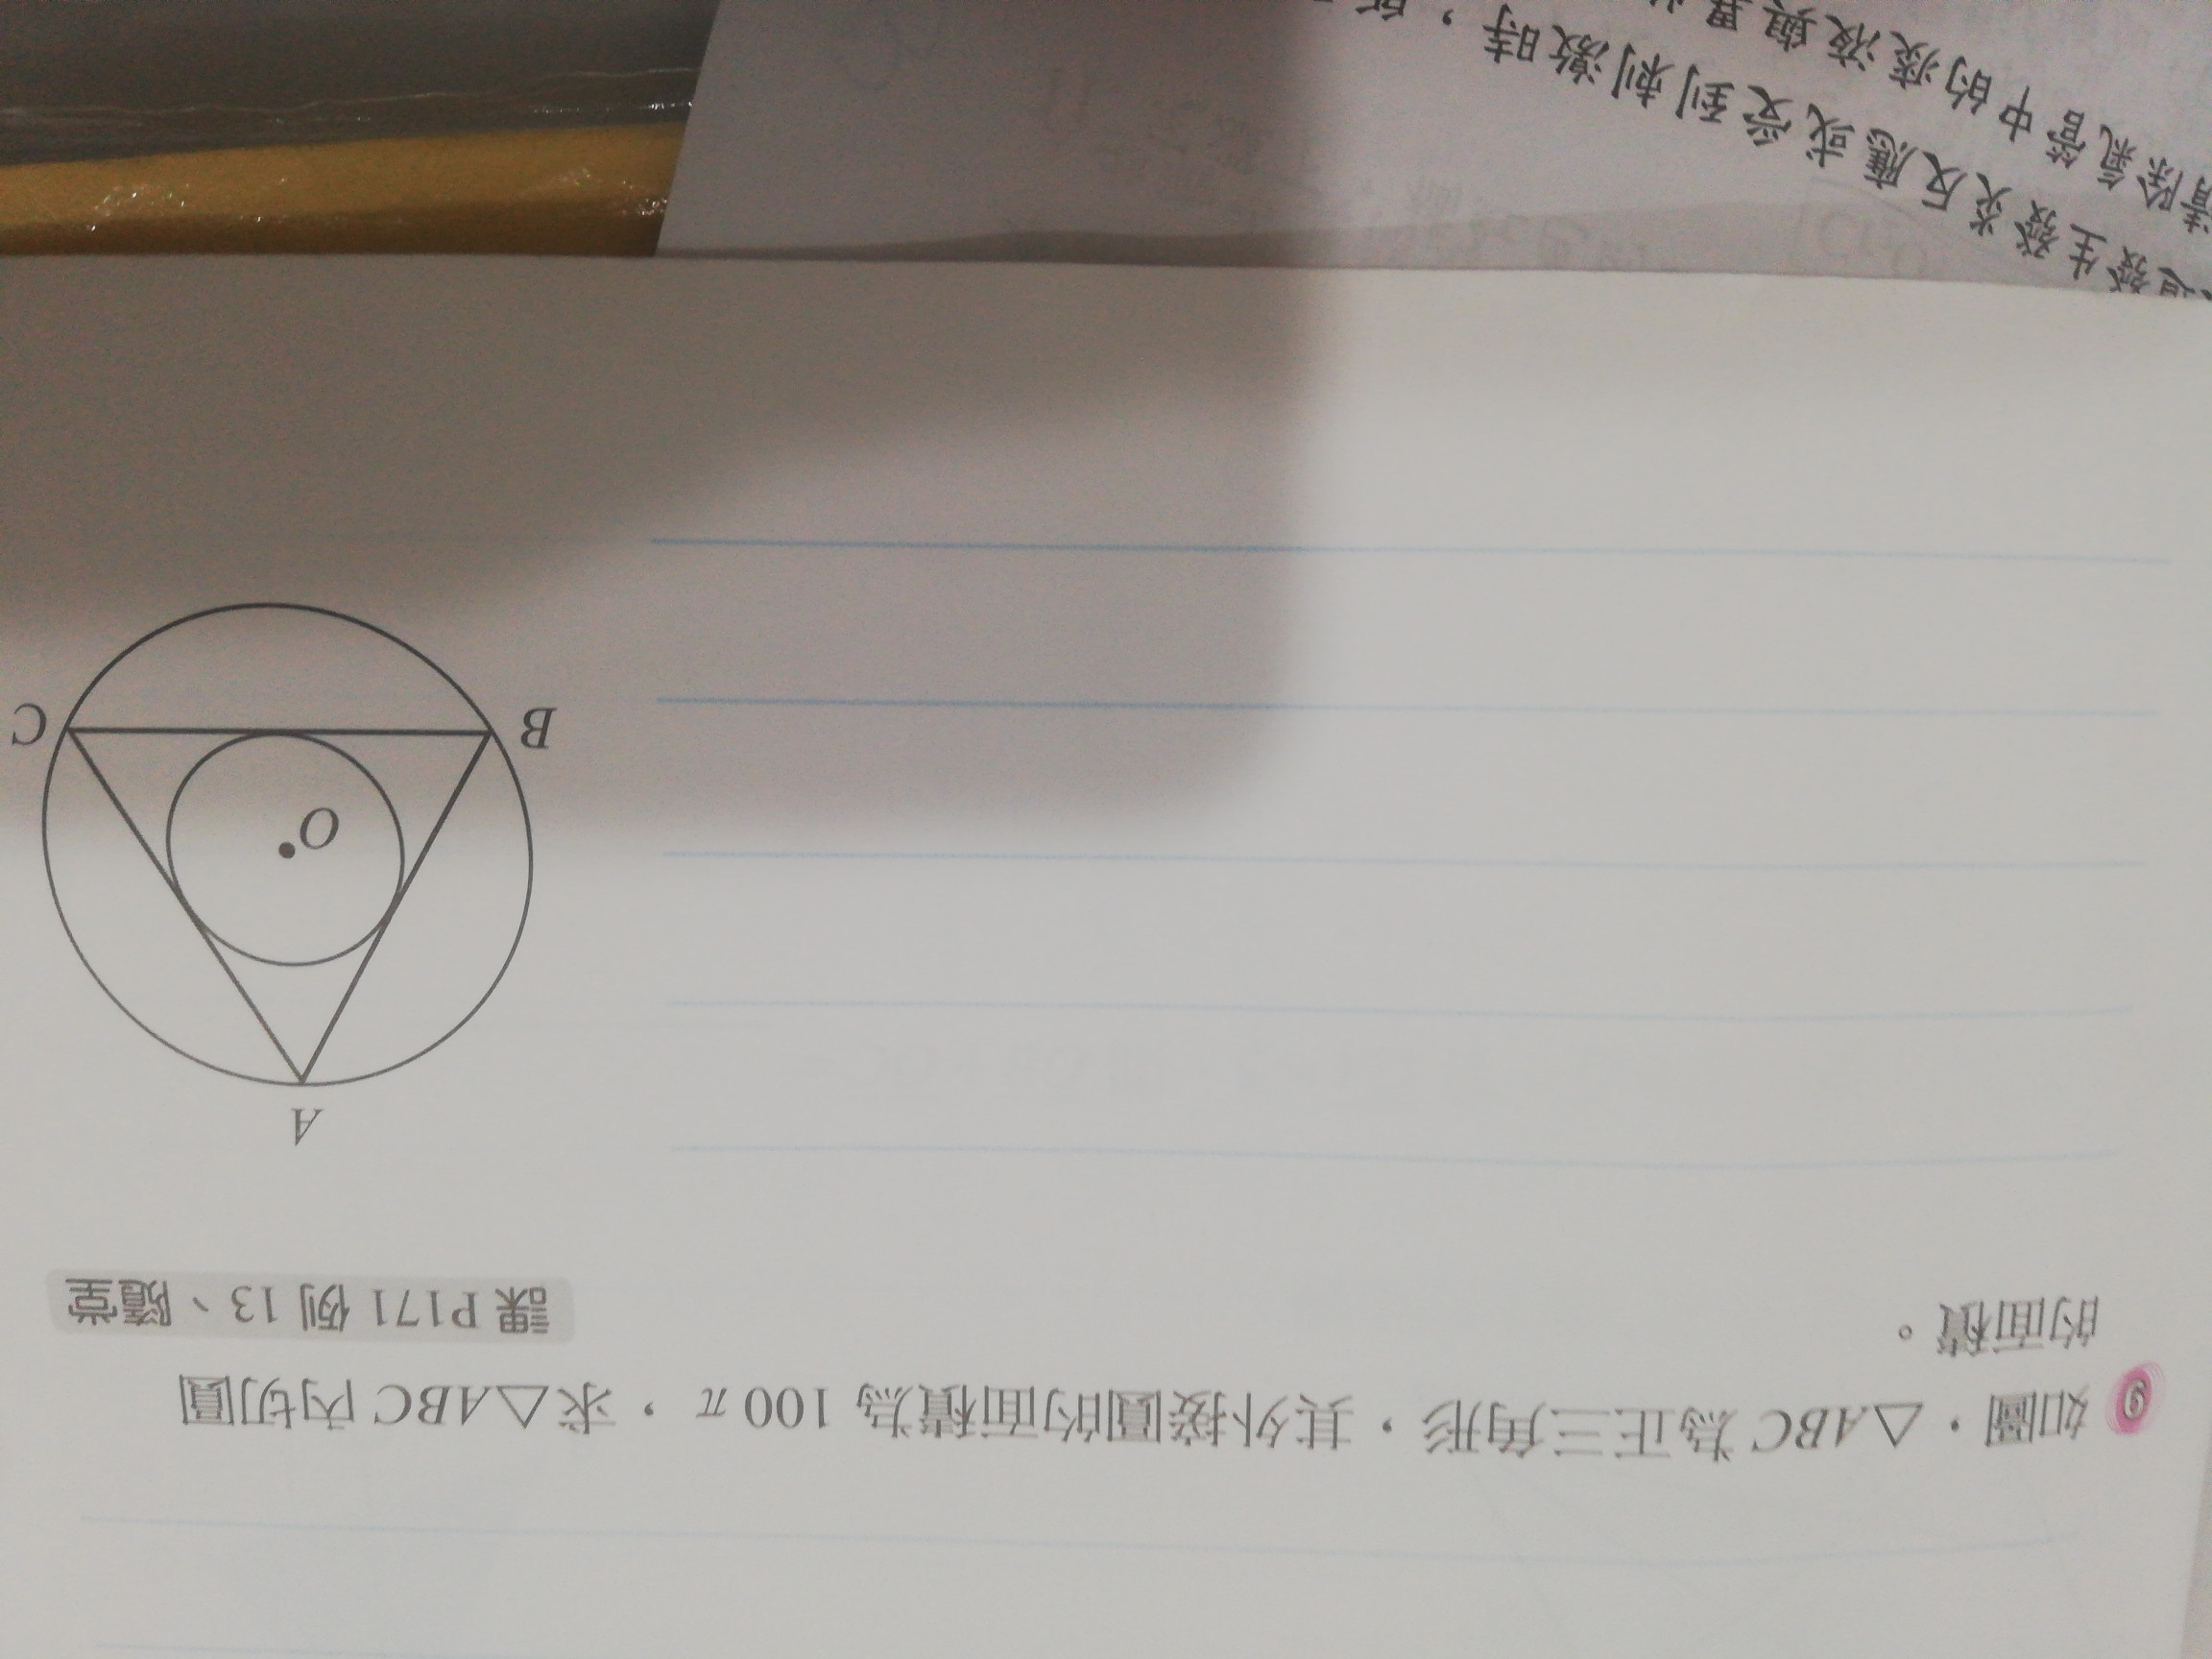 9 如圖，△ABC 為正三角形，其外接圓的面積為 100π，求△ABC 內切圓
的面積。
課 P171 例 13、隨堂
A
O
B
C
發生發炎反應或受到刺激時，
清除氣管中的痰液與異